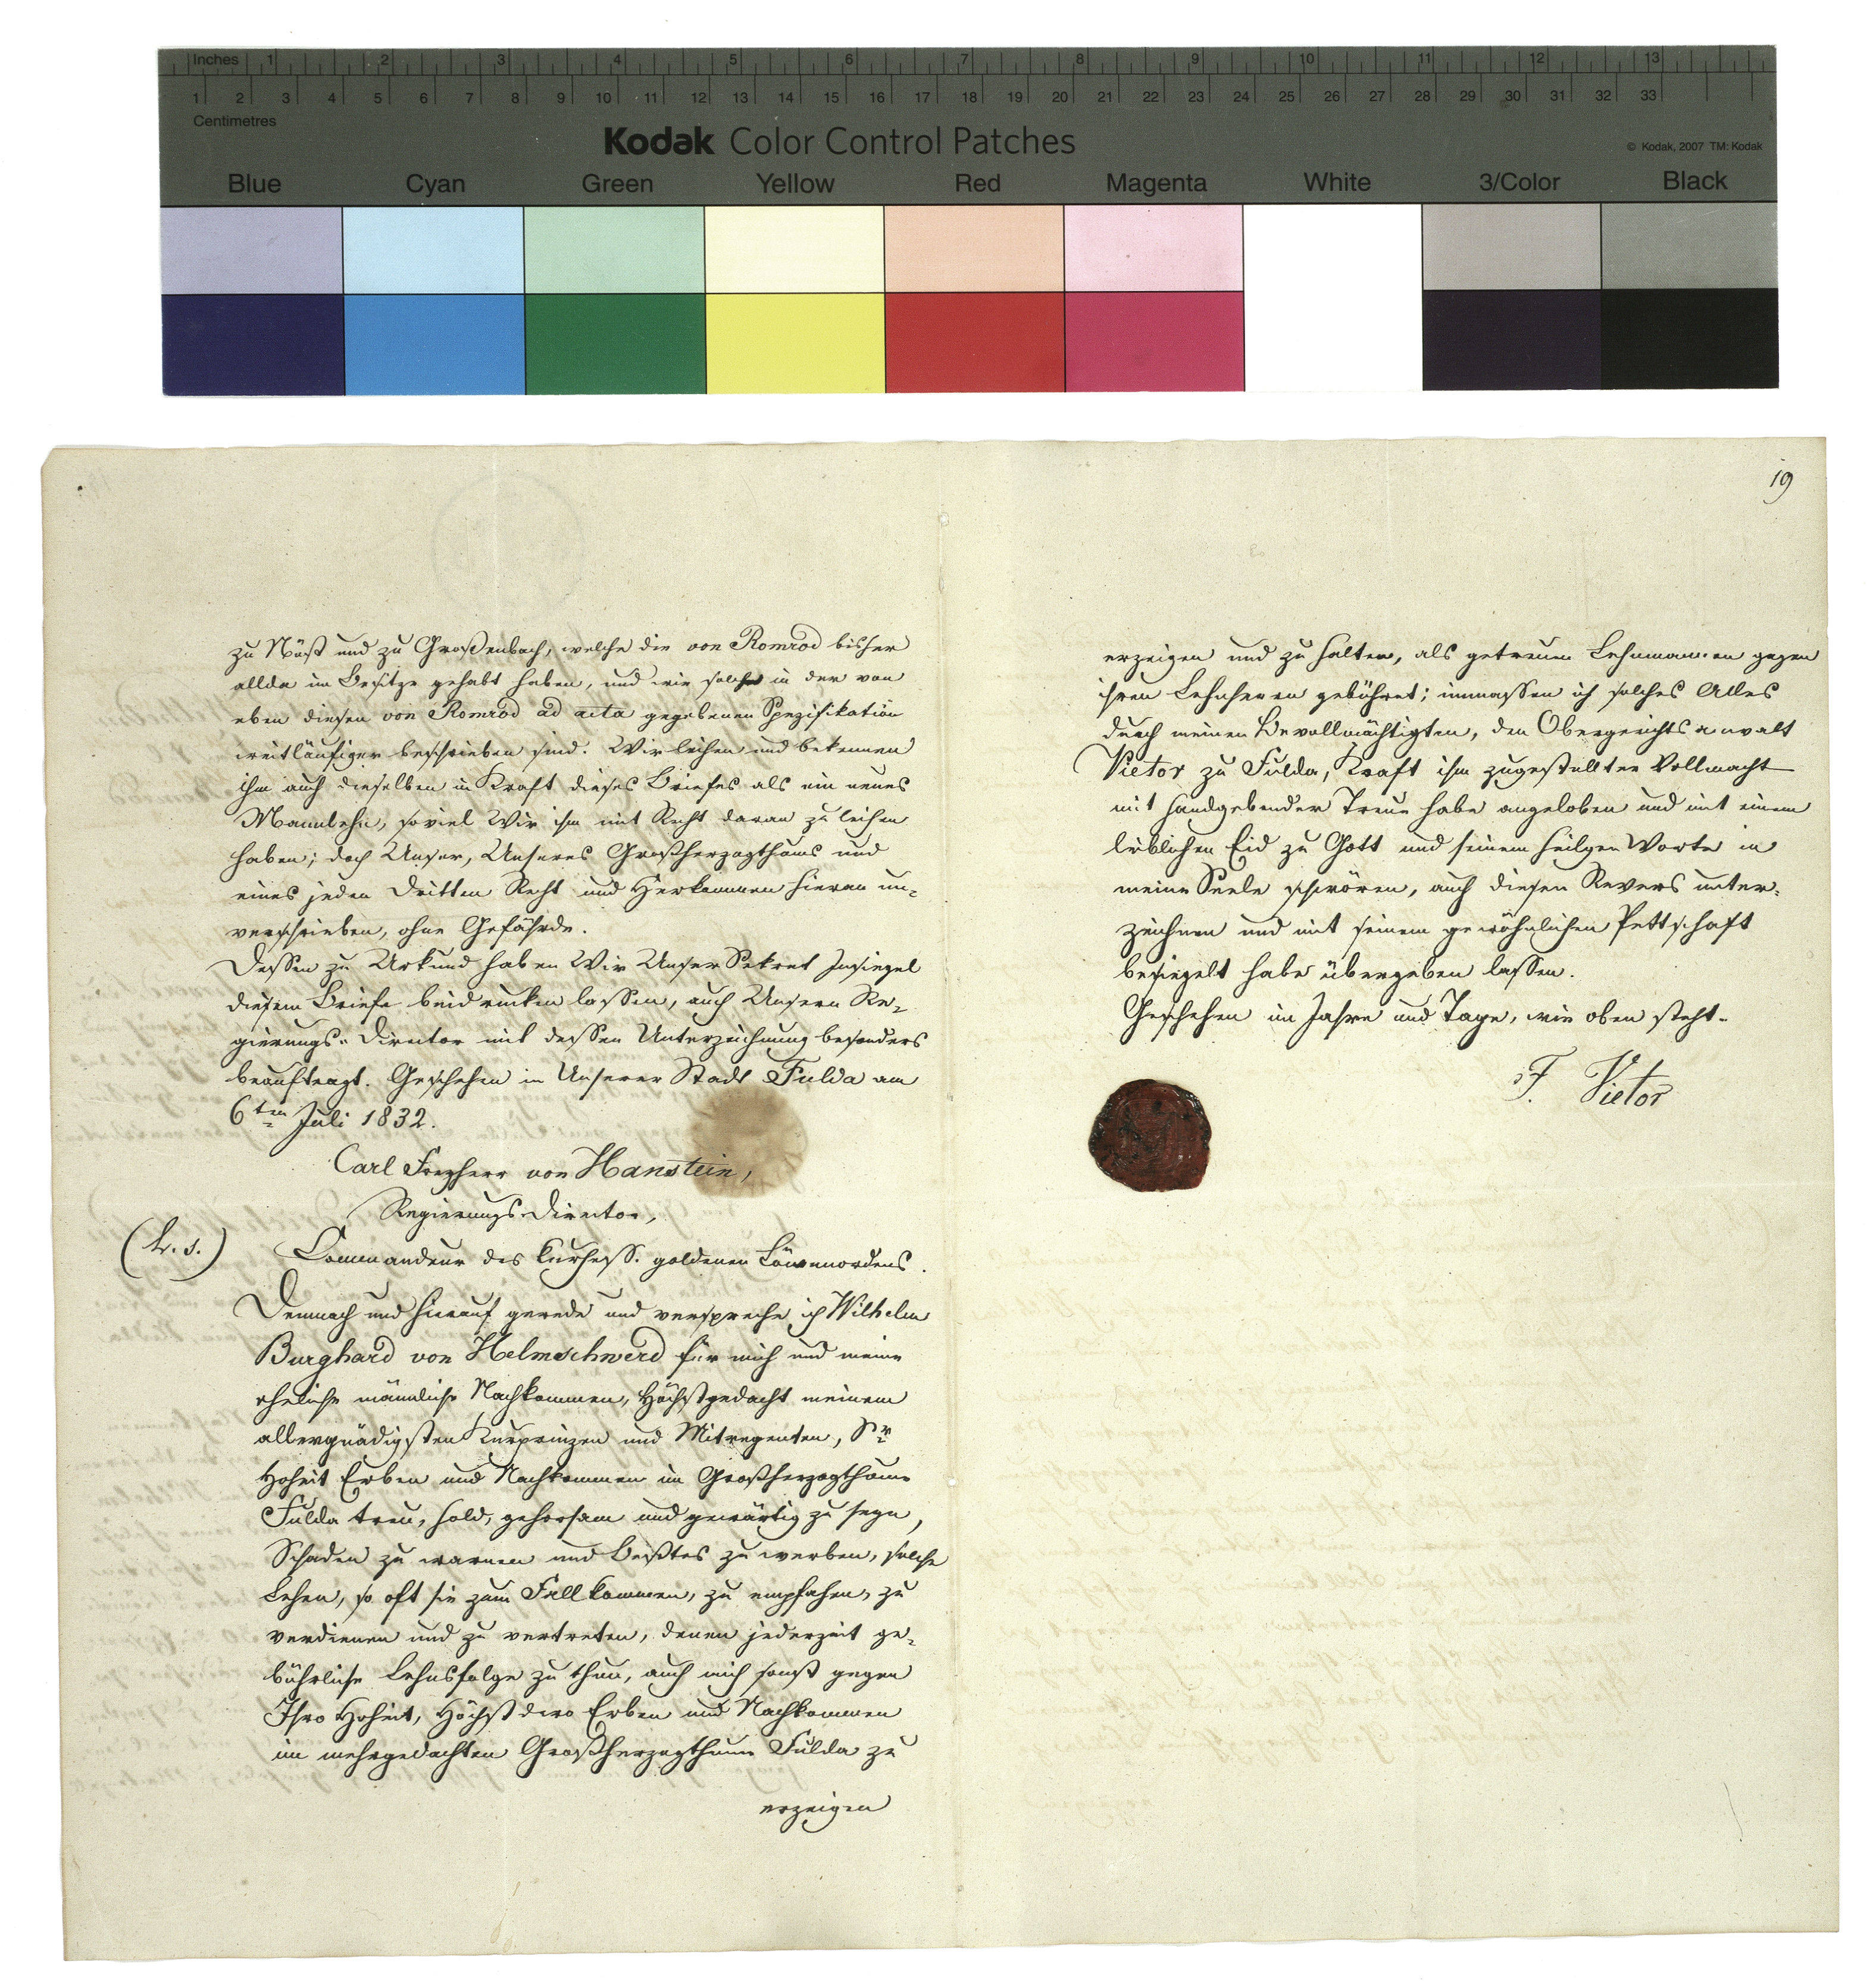 Inches 1 2 3 4 5 6 7 8 9 10 11 12 13
1 2 3 4 5 6 7 8 9 10 11 12 13 14 15 16 17 18 19 20 21 22 23 24 25 26 27 28 29 30 31 32 33
Centimetres
Kodak Color Control Patches
© Kodak, 2007 TM: Kodak
Blue Cyan Green Yellow Red Magenta White 3/Color Black
zu Nüst und zu Großenbach, welche die von Romrod bisher
allda im Besitze gehabt haben, und wie solche in der von
eben diesen von Romrod ad acta gegebenen Spezifikation
weitläufiger beschrieben sind. Wir leihen und bekennen
ihm auch dieselben in Kraft dieses Briefes als ein neues
Mannlehn, soviel Wir ihm mit Recht daran zu leihen
haben; doch Unser, Unseres Großherzogthums und
eines jeden Dritten Recht und Herkommen hieran un-
verschrieben, ohne Gefährde.
Dessen zu Urkund haben Wir Unser Sekret Insiegel
diesem Briefe beidrucken lassen, auch Unsern Re-
gierungs-Director mit dessen Unterzeichnung besonders
beauftragt. Geschehen in Unserer Stadt Fulda am
6ten Juli 1832.
Carl Freyherr von Hanstein,
Regierungs-Director,
(L. S.) Commandeur des kurhess. goldenen Löwenordens.
Demnach und hierauf gerede und verspreche ich Wilhelm
Burghard von Helmschwerd für mich und meine
eheliche männliche Nachkommen, Höchstgedacht meinem
allergnädigsten Kurprinzen und Mitregenten, Sr
Hoheit Erben und Nachkommen im Großherzogthume
Fulda treu, hold, gehorsam und gewärtig zu seyn,
Schaden zu warnen und Beßtes zu werben, solche
Lehen, so oft sie zum Fall kommen, zu empfahen, zu
verdienen und zu vertreten, denen jederzeit ge-
bührliche Lehnsfolge zu thun, auch mich sonst gegen
Ihro Hoheit, Höchst dero Erben und Nachkommen
im mehrgedachten Großherzogthume Fulda zu
erzeigen
19
erzeigen und zu halten, als getreuen Lehnmannen gegen
ihren Lehnherrn gebühret; immassen ich solches Alles
durch meinen Bevollmächtigten, den Obergerichtsanwalt
Vietor zu Fulda, Kraft ihm zugestellter Vollmacht
mit handgebender Treue habe angeloben und mit einem
leiblichen Eid zu Gott und seinem heilgen Worte in
meine Seele schwören, auch diesen Revers unter-
zeichnen und mit seinem gewöhnlichen Pettschaft
besiegelt habe übergeben lassen.
Geschehen im Jahre und Tage, wie oben steht.
F. Vietor